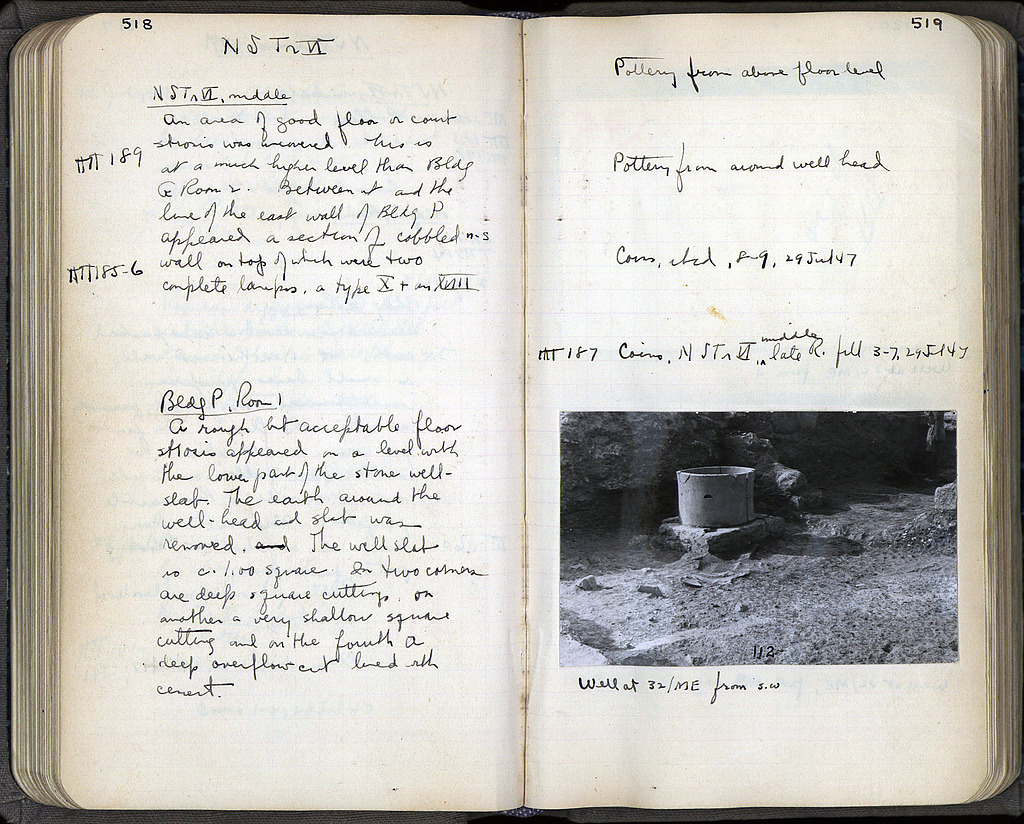 518
NSTrVI
NSTrVI, middle
An area of good floor or court
strosis was uncovered This is
ΠΠ 189 at a much higher level than Bldg
G Room 2. Between it and the
line of the east wall of Bldg P
appeared a section of cobbled n-s
ΠΠ 185-6 wall on top of which were two
complete lamps, a type X + an XXVIII
Bldg P, Room 1
A rough but acceptable floor
strosis appeared on a level with
the lower part of the stone well-
slab. The earth around the
well-head and slab was
removed. and The well slab
is c. 1.00 square. In two corners
are deep square cuttings, on
another a very shallow square
cutting and on the fourth a
deep overflow cut lined with
cement.
519
Pottery from above floor level
Pottery from around well head
Coins, 8-9, 29 Jul 47
187 Coins, NSTrVI, middle late R. fill 3-7, 29 Jul 47
112
Well at 32/ME from s.w